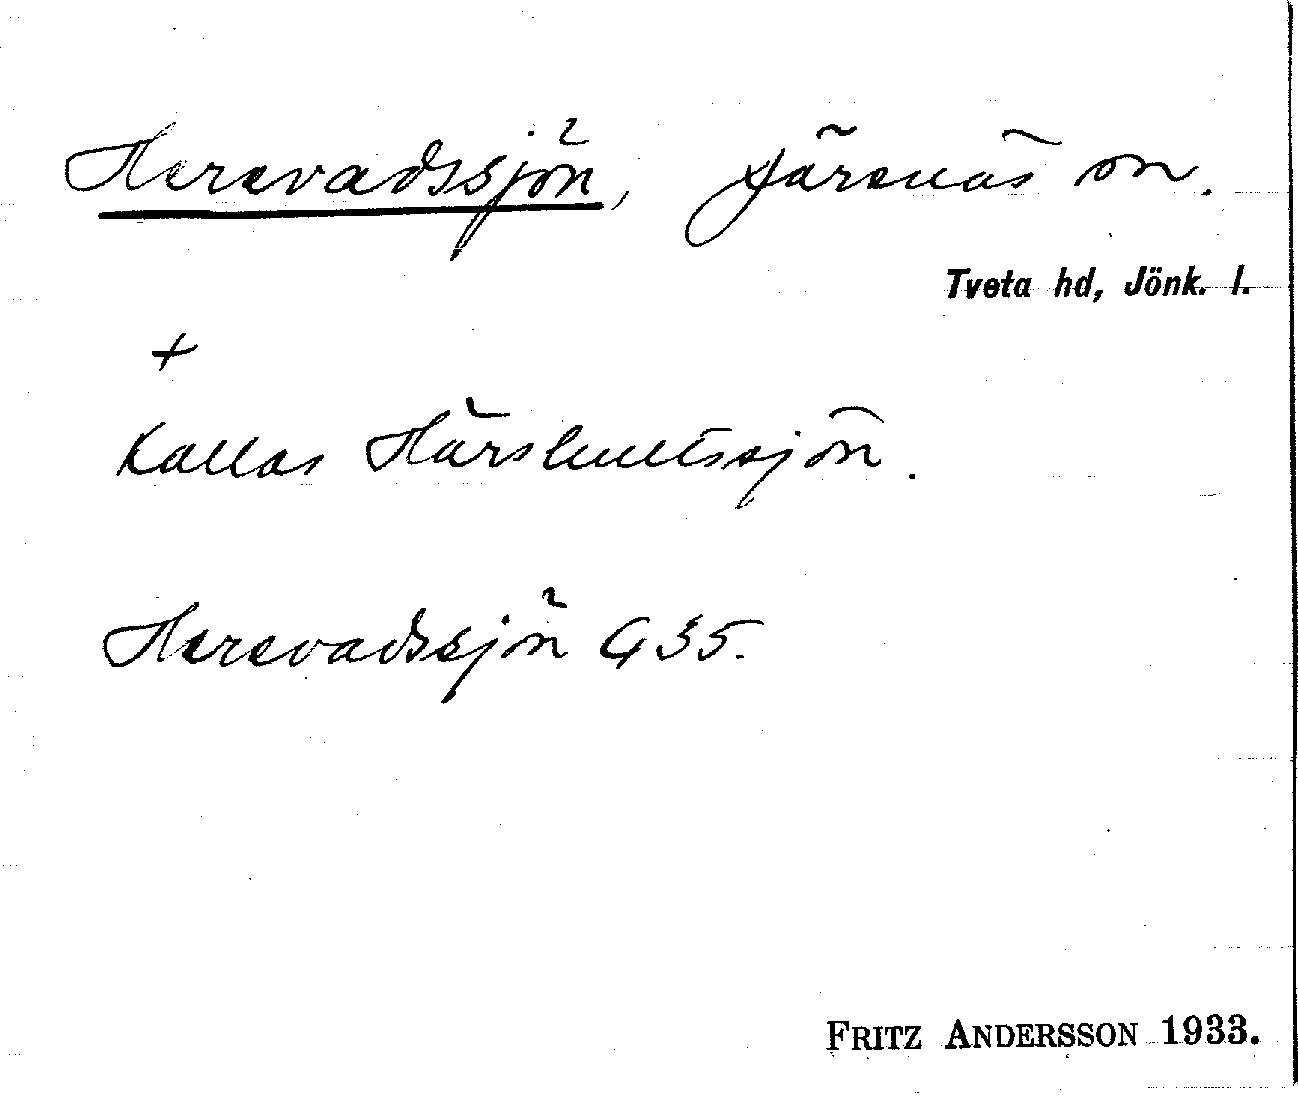 Herevadssjön, Järsnäs sn.
Tveta hd, Jönk. l.
+
Kallas Härshultssjön.
Herevadssjön G 35.
FRITZ ANDERSSON 1933.